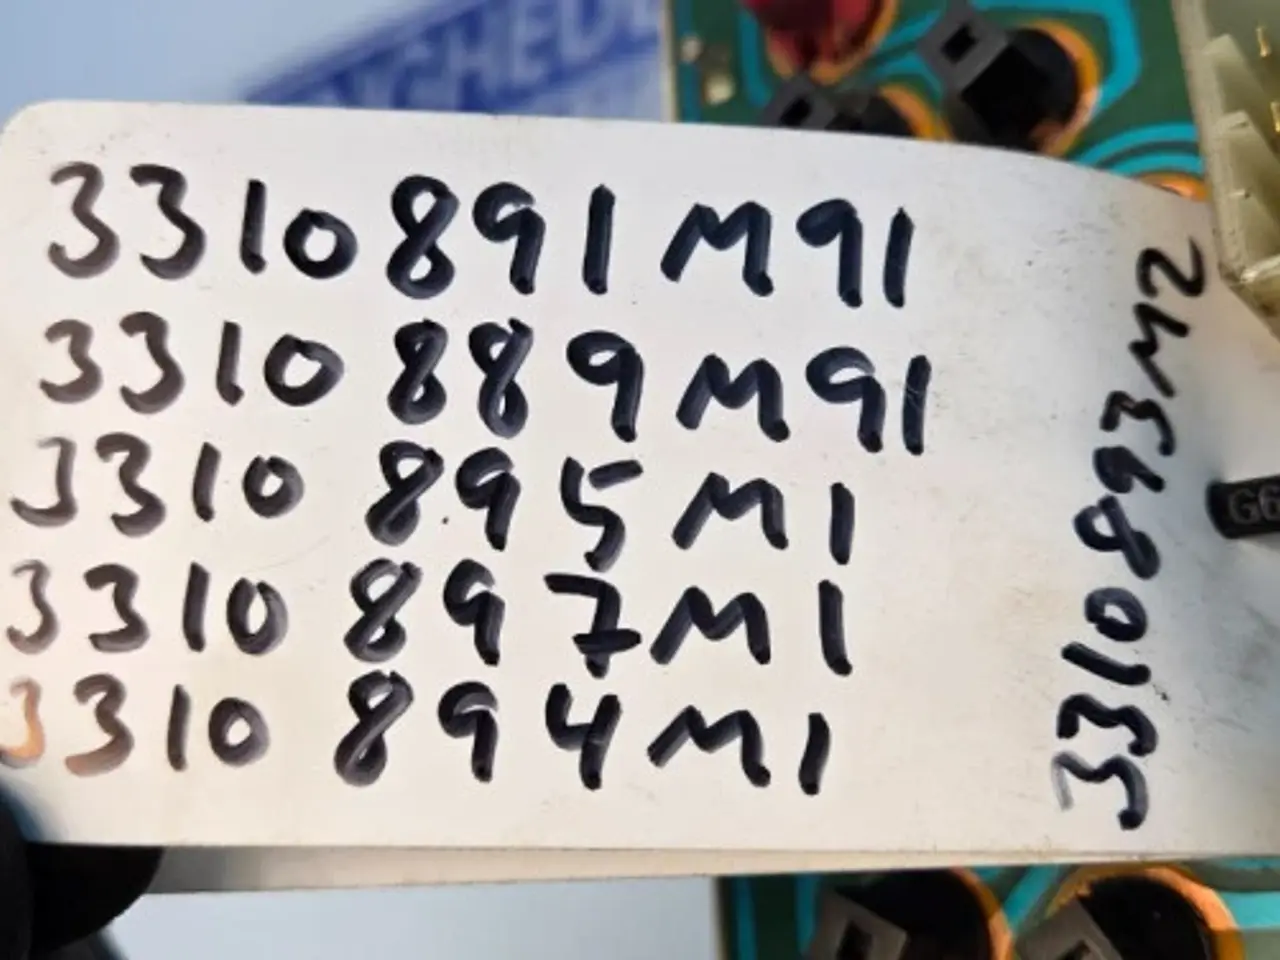 3310 891 M91
3310 889 M91
3310 895 M1
3310 897 M1
3310 894 M1
3310893M2
G6